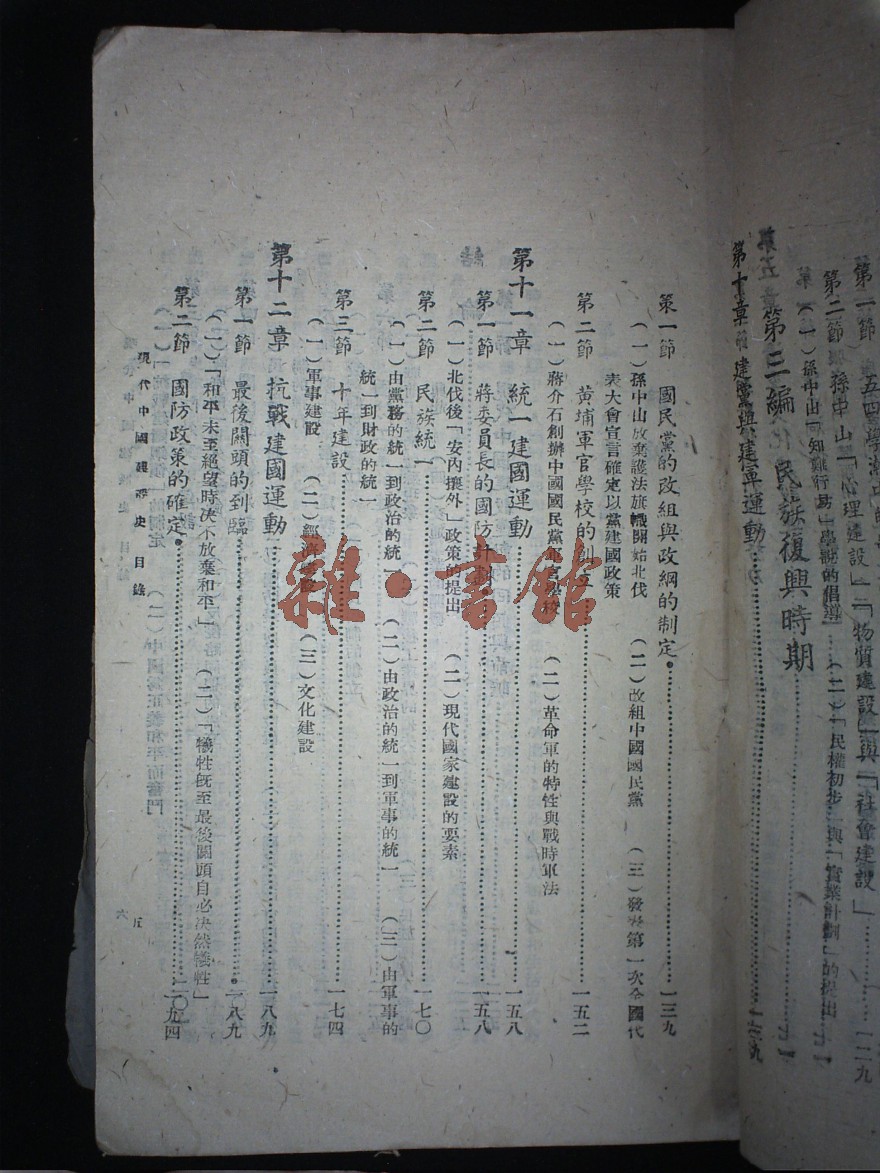 第二節 孫中山「心理建設」「物質建設」與「社會建設」
(一)孫中山「知難行易」學說的倡導 (二)「民權初步」與「實業計劃」的提出
第三編 民族復興時期
第十章 建黨與建軍運動 一三九
第一節 國民黨的改組與政綱的制定 一三九
(一)孫中山放棄護法旗幟開始北伐 (二)改組中國國民黨 (三)發表第一次全國代
表大會宣言確定以黨建國政策
第二節 黃埔軍官學校的創立 一五二
(一)蔣介石創辦中國國民黨軍官學校 (二)革命軍的特性與戰時軍法
第十一章 統一建國運動 一五八
第一節 蔣委員長的國防計劃 一五八
(一)北伐後「安內攘外」政策的提出 (二)現代國家建設的要素
第二節 民族統一 一七〇
(一)由黨務的統一到政治的統一 (二)由政治的統一到軍事的統一 (三)由軍事的
統一到財政的統一
第三節 十年建設 一七四
(一)軍事建設 (二)經濟建設 (三)文化建設
第十二章 抗戰建國運動 一八九
第一節 最後關頭的到臨 一八九
(一)「和平未至絕望時決不放棄和平」 (二)「犧牲既至最後關頭自必決然犧牲」
第二節 國防政策的確定
現代中國經濟史 目錄
五
雜·書館